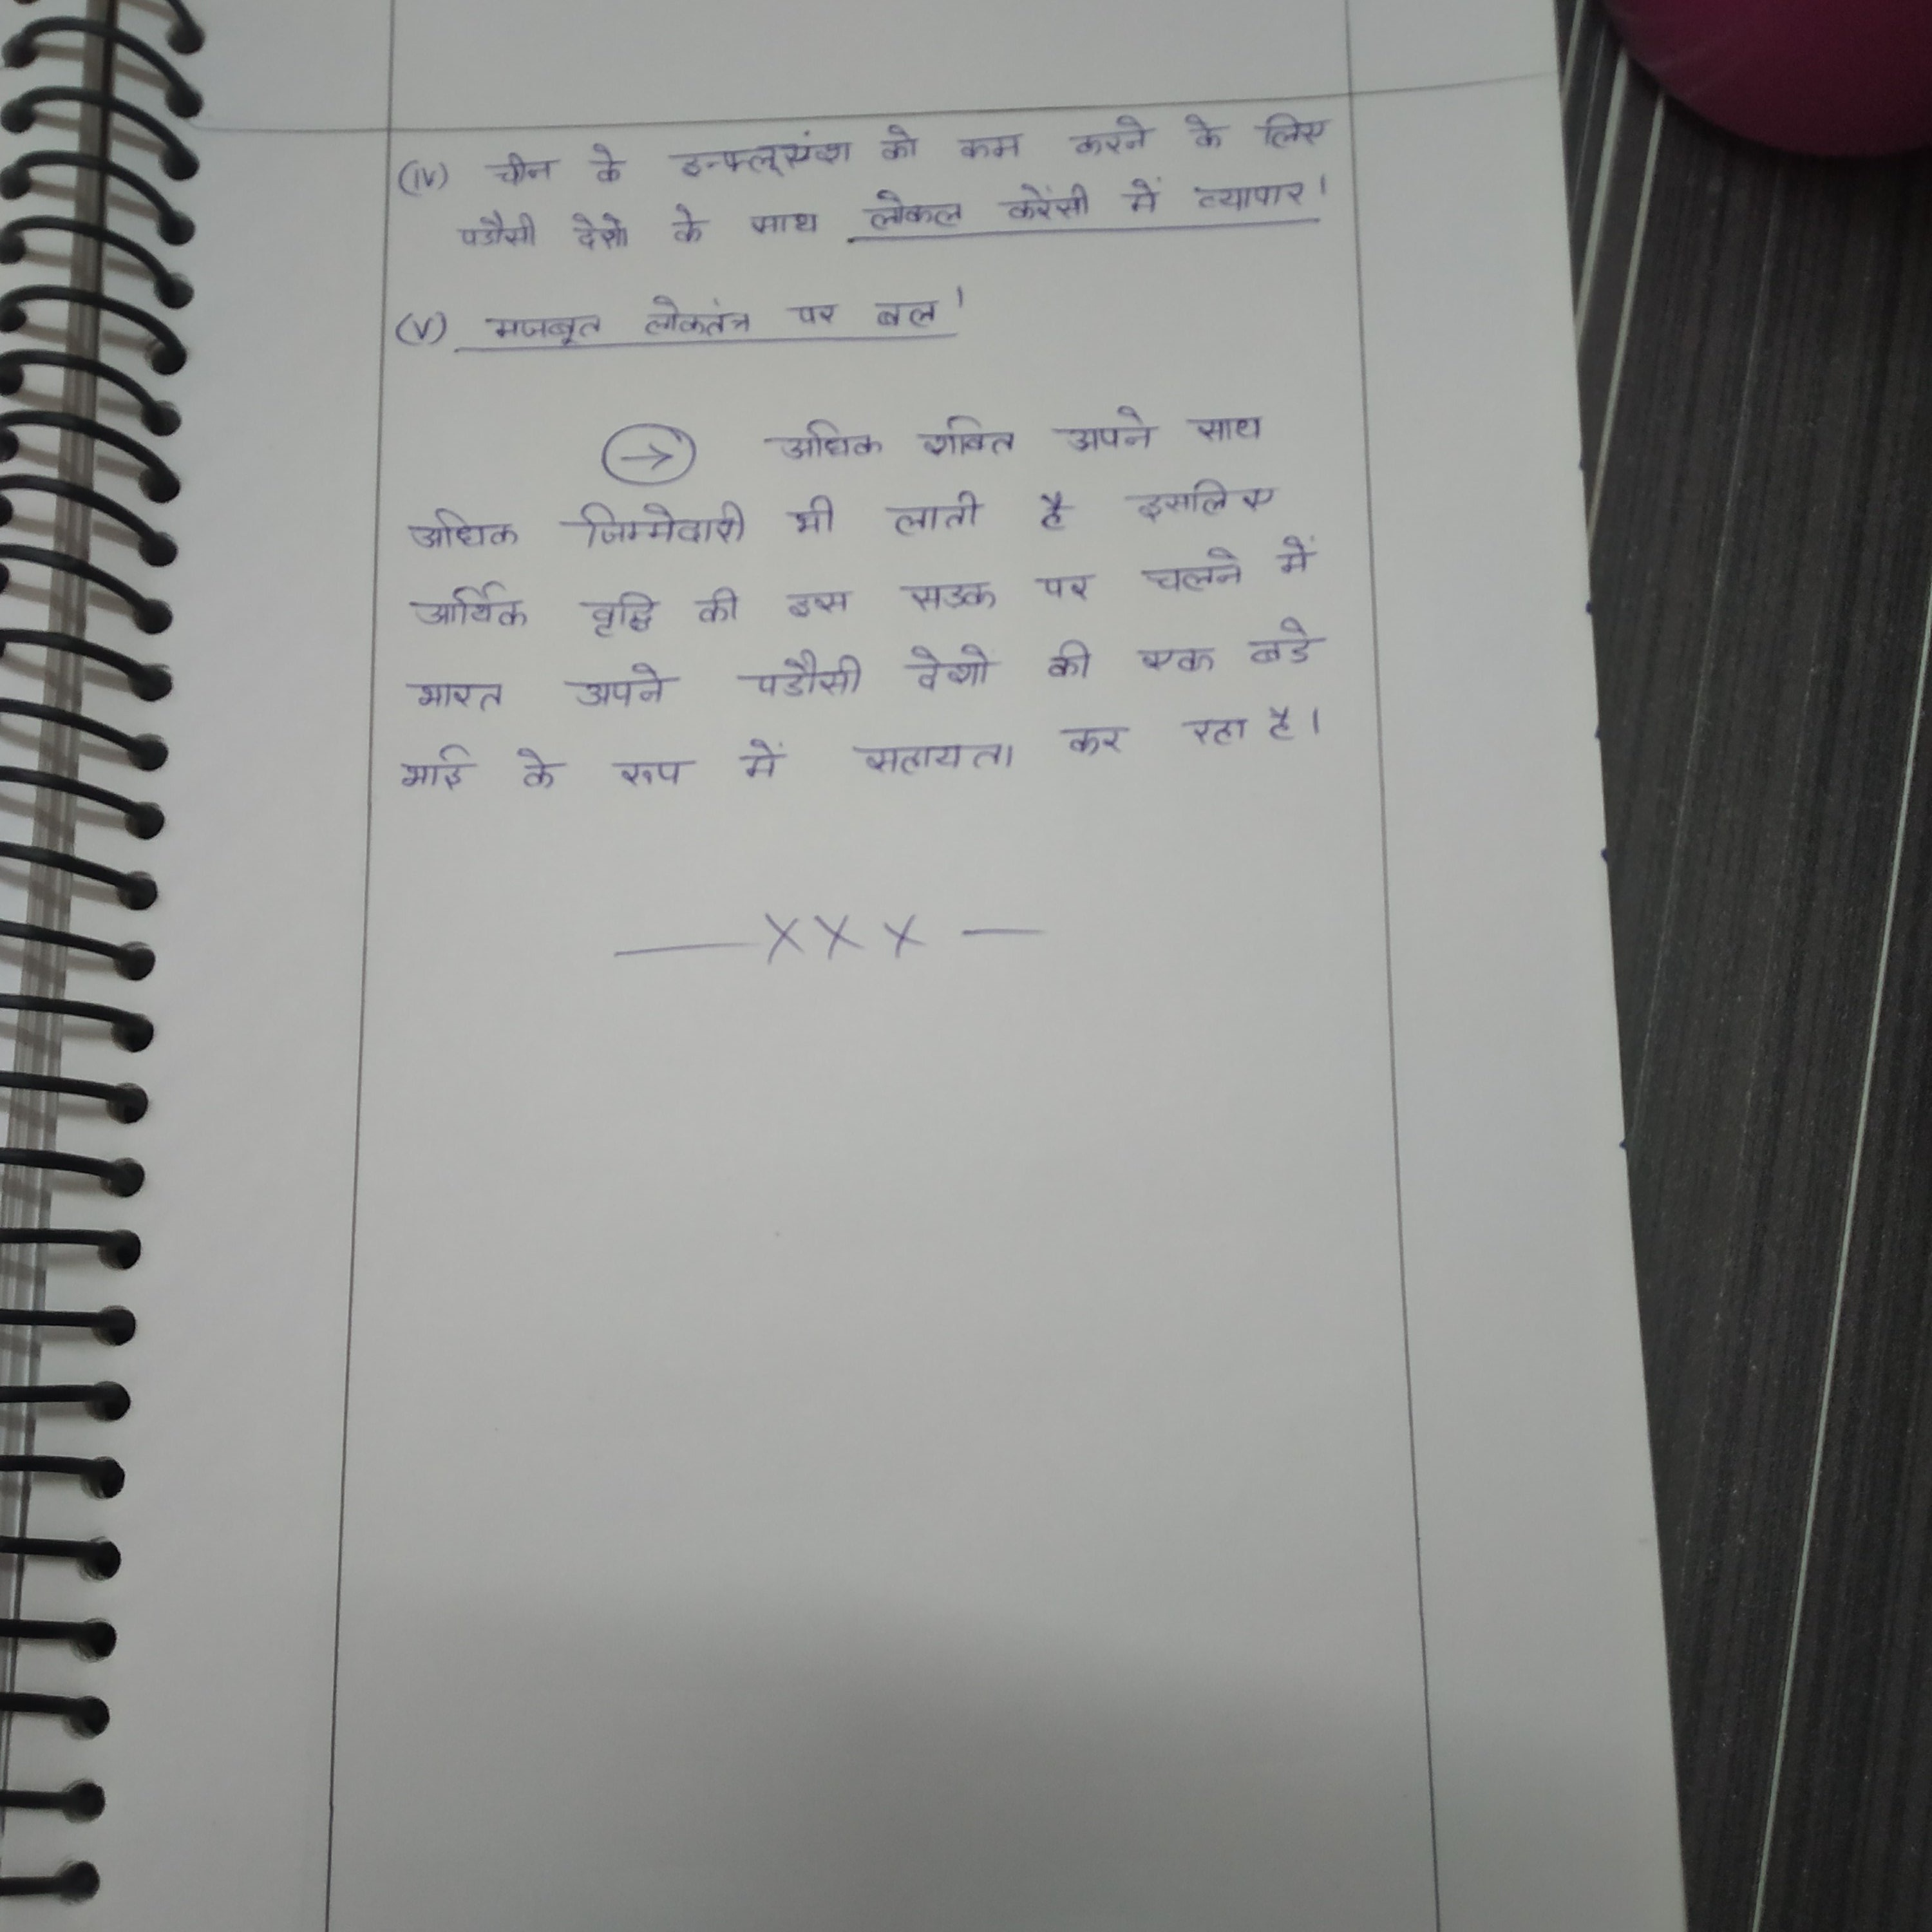 (iv) चीन के इन्फ्लूएंश को कम करने के लिए
पडौसी देशो के साथ लोकल करेंसी में व्यापार।
(v) मजबूत लोकतंत्र पर बल।
→ अधिक शक्ति अपने साथ
अधिक जिम्मेदारी भी लाती है इसलिए
आर्थिक वृद्धि की इस सडक पर चलने में
भारत अपने पडौसी देशों की एक बडे
भाई के रूप में सहायता कर रहा है।
—XXX—